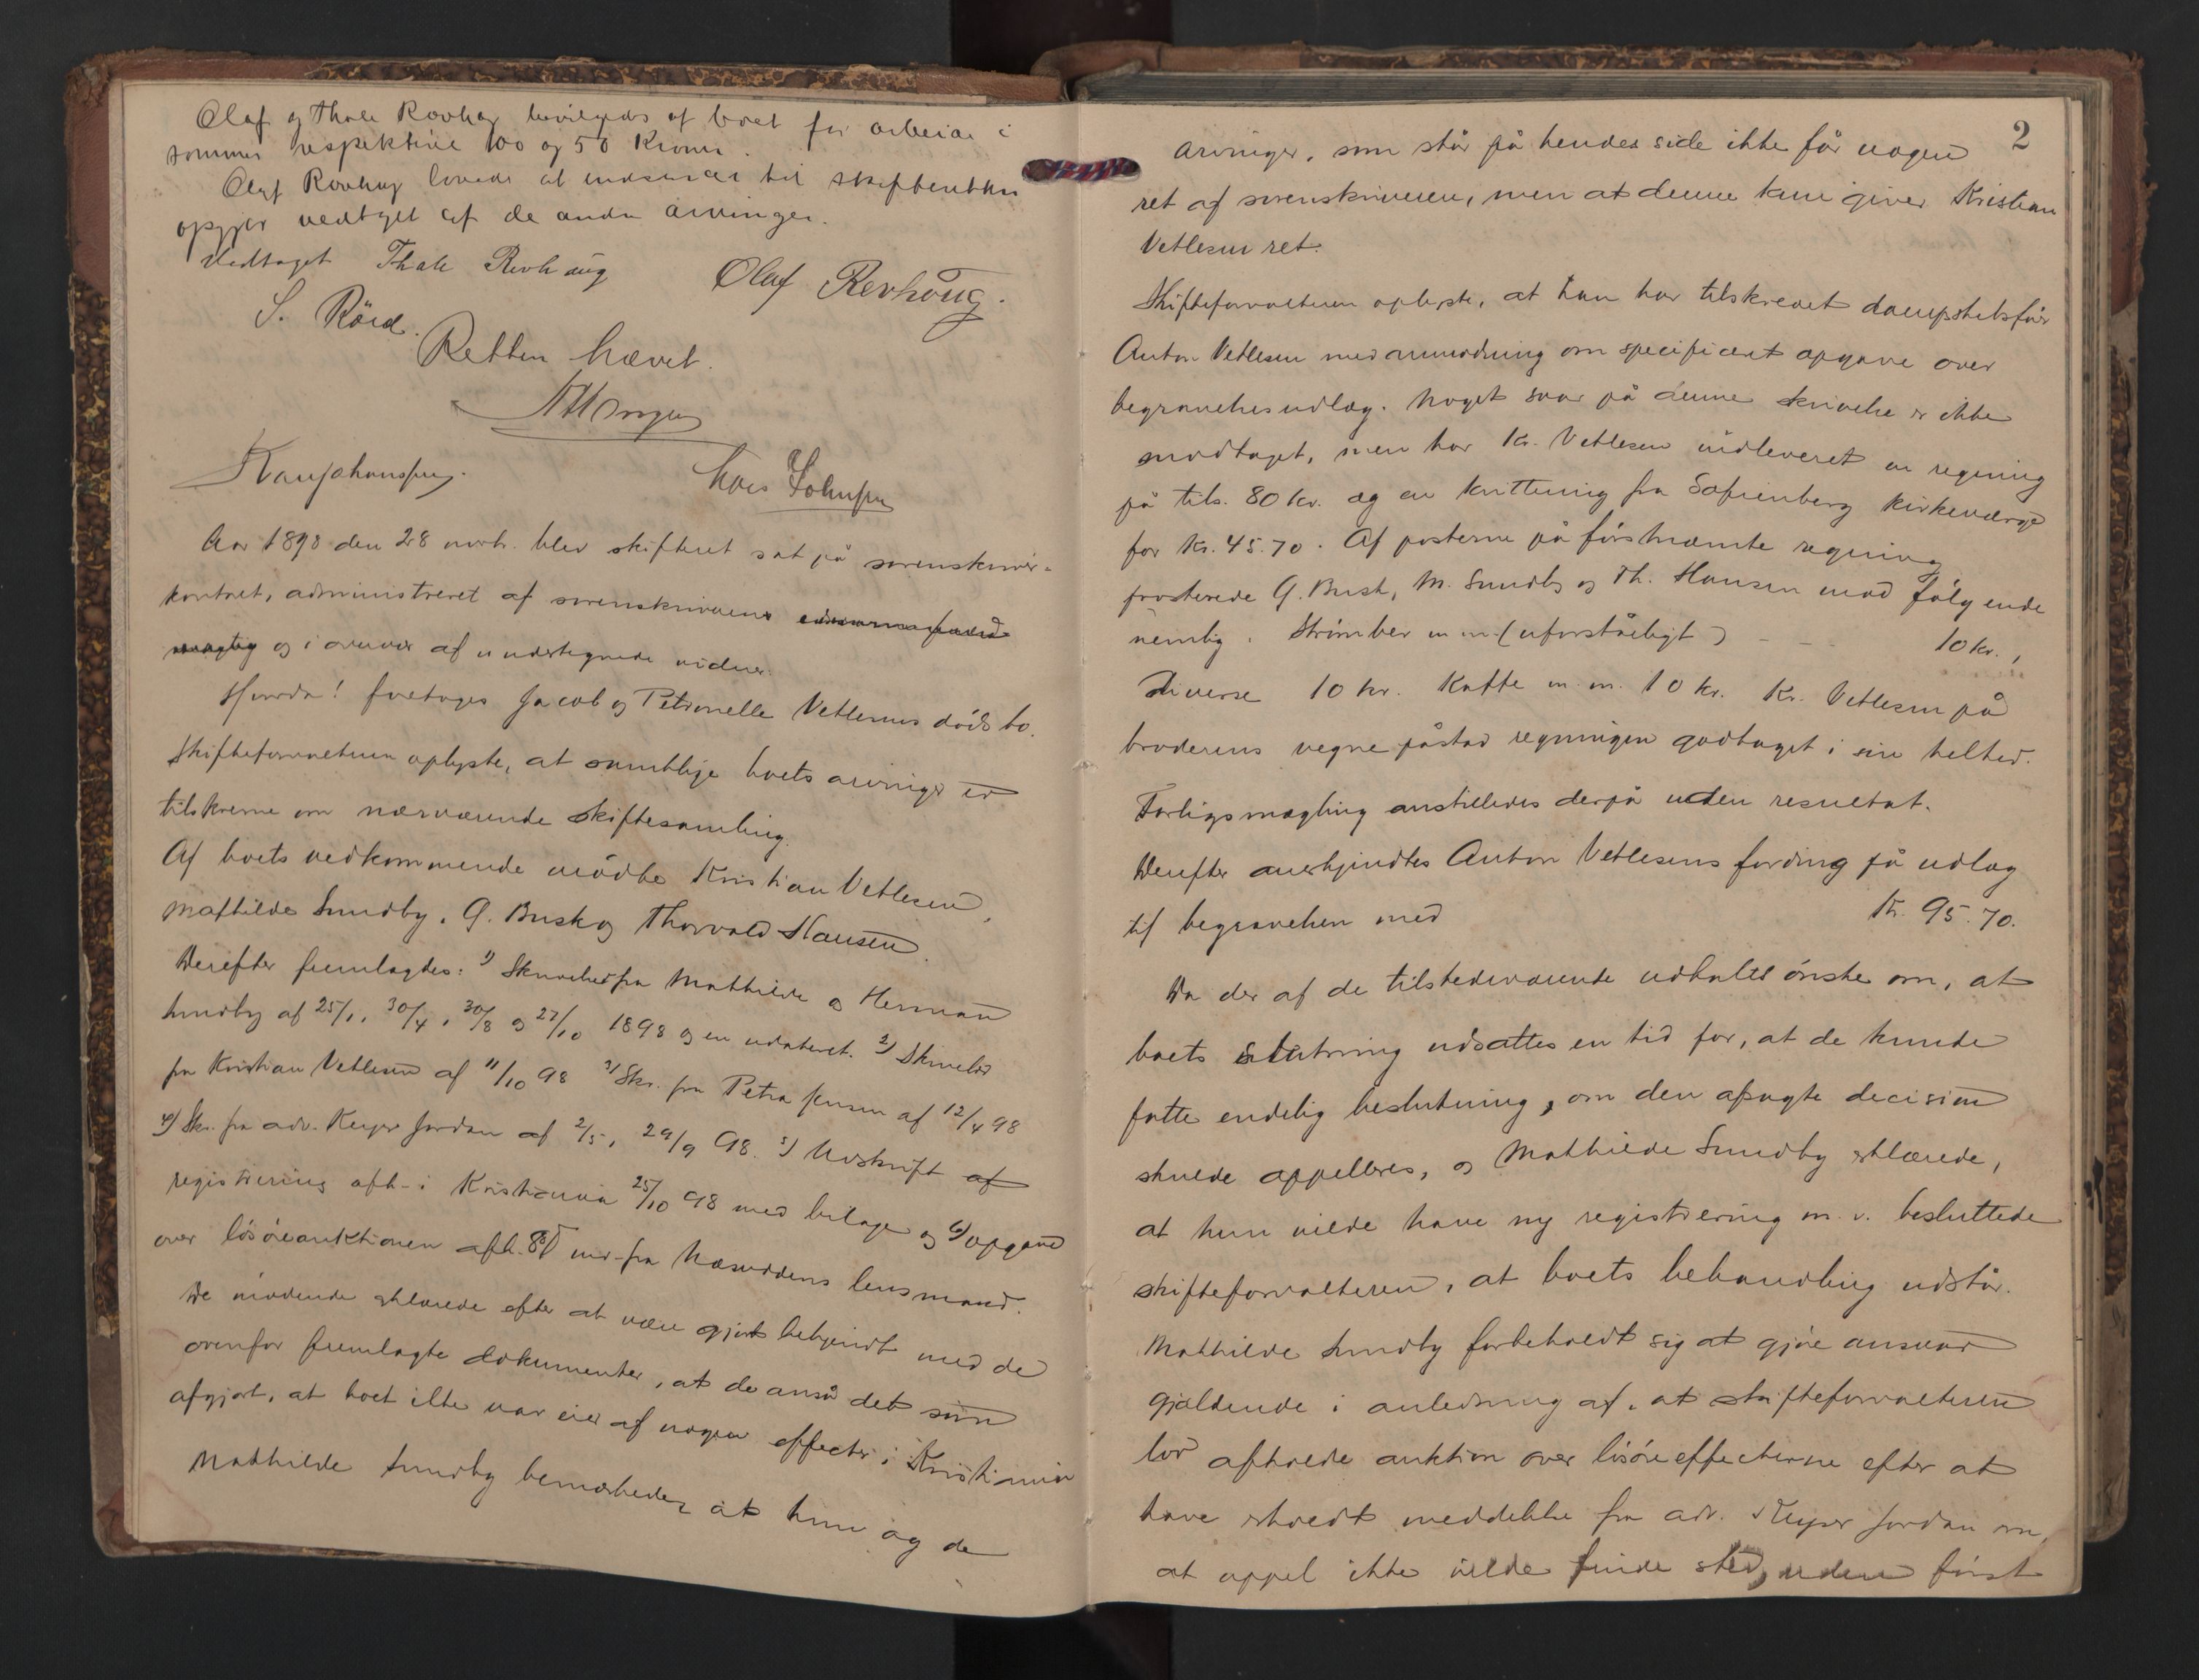 Olaf og Thale Rovhag bevilgedes af boet for arbeide i
sommer respektive 100 og 50 Kroner.
Olaf Rovhag lovede at indsende til skifteretten
opgjør vedtaget af de andre arvinger.
Vedtaget Thale Rovhaug Olaf Rovhoug.
S. Röed.
Retten hævet.
Aar 1898 den 28 novb. blev skifteret sat på sorenskriver-
kontoret, administreret af sorenskriverens
og i overvær af undertegnede vidner.
Hvorda! foretoges Jacob og Petronelle Vetlesens dødsbo.
Skifteforvalteren oplyste, at samtlige boets arvinger er
tilskrevne om nærværende skiftesamling.
Af boets vedkommende mödte Kristian Vetlesen,
Mathilde Sundby, G. Busk og Thorvald Hansen.
Derefter fremlagdes: 1) Skrivelser fra Mathilde og Herman
Sundby af 25/1, 30/4, 30/8 og 27/10 1898 og en udateret. 2) Skrivelse
fra Kristian Vetlesen af 11/10 98 3) Skr. fra Petra Jensen af 12/4 98
4) Skr. fra adv. Keyser Jordan af 2/5, 29/9 98. 5) Udskrift af
registrering afh. i Kristiania 25/10 98 med bilage og 6) opgave
over lösöreauktionen afh. fra Næsoddens lensmand.
De mödende erklærede efter at være gjort bekjendt med de
ovenfor fremlagte dokumenter, at de anså det som
afgjort, at boet ikke var eier af nogen effecter i Kristiania
Mathilde Sundby bemærkede, at hun og de
2
arvinger, som står på hendes side ikke får nogen
ret af sorenskriveren, men at denne kun giver Kristian
Vetlesen ret.
Skifteforvalteren oplyste, at han har tilskrevet dampskibsfører
Anton Vetlesen med anmodning om specificeret opgave over
begravelsesudlæg. Noget svar på denne skrivelse er ikke
modtaget, men har Kr. Vetlesen indleveret en regning
på tils. 80 kr. og en kvittering fra Sofienberg kirkeværge
for Kr. 45.70. Af posterne på förstnævnte regning
protesterede G. Busk, M. Sundby og Th. Hansen mod fölgende
nemlig: m m (uforståeligt) - - 10 kr.,
Diverse 10 kr. Kaffe m. m. 10 kr. Kr. Vetlesen på
broderens vegne påstod regningen godtaget i sin helhed.
Forligsmægling anstilledes derpå uden resultat.
Derefter anerkjendtes Anton Vetlesens fordring på udlæg
til begravelsen med Kr. 95.70.
Da der af de tilstedeværende udtaltes önske om, at
boets slutning udsattes en tid for, at de kunde
fatte endelig beslutning, om den afsagte decision
skulde appelleres, og Mathilde Sundby erklærede,
at hun vilde have ny registrering m. v. besluttede
skifteforvalteren, at boets behandling udstår.
Mathilde Sundby forbeholdt sig at gjöre ansvar
gjældende i anledning af, at skifteforvalteren
lod afholde auktion over lösöreeffecterne efter at
have erholdt meddelelse fra adv. Keyser Jordan om,
at appel ikke vilde finde sted, uden först